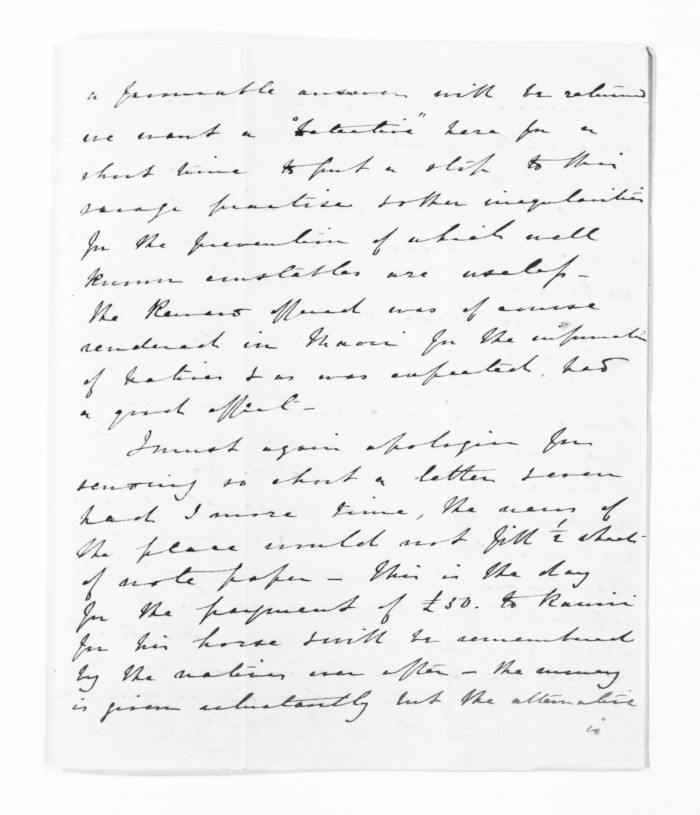 a favourable answer will be returned
we want a "Detective" here for a
short time to put a stop to this
savage practise & other irregularities
for the prevention of which well
known constables are useless -
The Reward offered was of course
rendered in Maori for the information
of natives & as was expected, had
a good effect -
I must again apologise for
sending so short a letter & even
had I more time, the news of
the place would not fill 1/2 sheet
of note paper - This is the day
for the payment of £50. to
for his horse & will be remembered
by the natives ever after - the money
is given reluctantly but the alternative
is